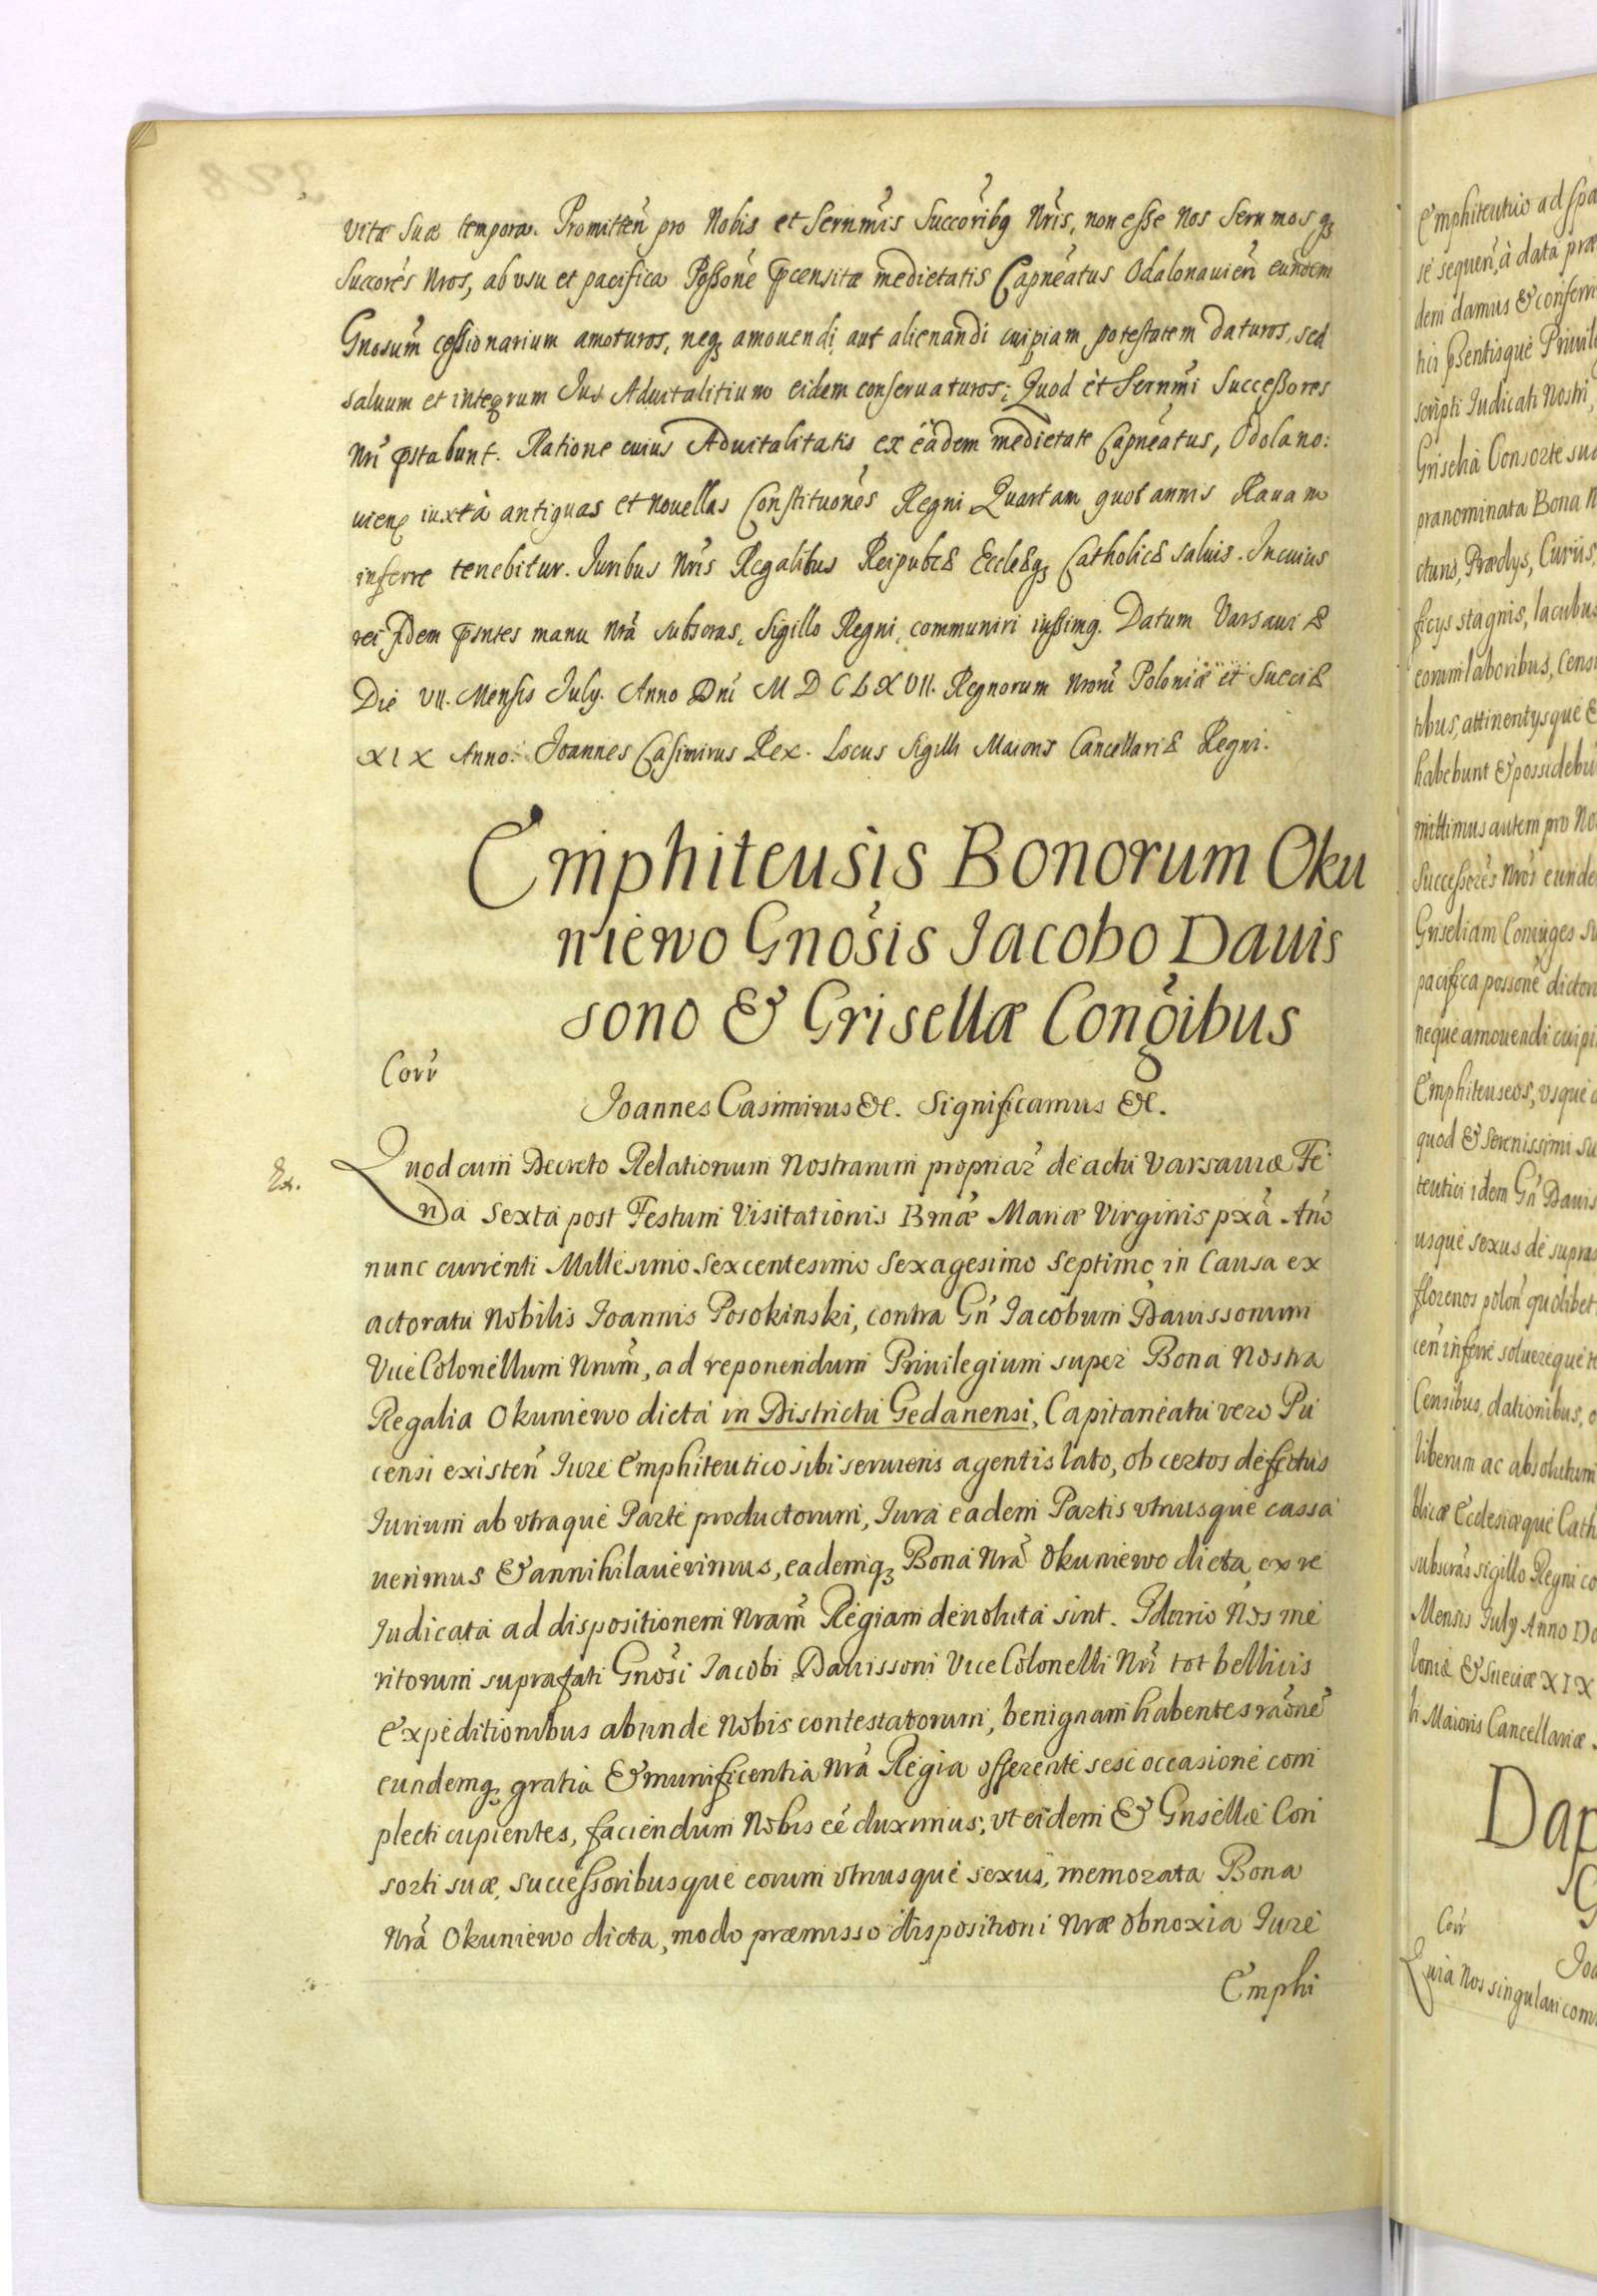 vitæ suæ tempora. Promitteñ pro Nobis et Sernm̃is Succoribq Nr̃is, non esse Nos Sernmosqꝫ
Succorẽs Nros, ab vsu et pacifica Poßone p̃censitæ medietatis Capneatus Odalanouieñ eundem
Gnosum̃ ceßionarium amoturos, neqꝫ amouendi aut alienandi cuipiam potestatem daturos, sed
saluum et integrum Jus Aduitalitium eidem conseruaturos; Quod et Sernm̃i Succeßores
Nr̃i p̃stabunt. Ratione cuius Aduitalitatis ex eadem medietate Capneatus, Odolano:
uieñ iuxta antiquas et nouellas Constituones Regni Quartam quot annis Rauam
inferre tenebitur. Juribus Nr̃is Regalibus Reipubcæ Ecclæqꝫ Catholicæ saluis. In cuius
rei fidem p̃sntes manu Nr̃a subscras, Sigillo Regni communiri iußimq. Datum Varsauiæ
Die VII. Mensis July. Anno Dnĩ MDCLXVII. Regnorum Nrorũ Poloniæ et Sueciæ
XIX Anno. Joannes Casimirus Rex. Locus Sigilli Maioris Cancellariæ Regni.
Emphiteusis Bonorum Oku
niewo Gnosis Jacobo Dauis
sono & Grisellæ Congibus
Corr
Joannes Casimirus &c. Significamus &c.
Ex.
Quod cum Decreto Relationum Nostrarum propriar̃ de actu Varsauiæ Fe
ria Sexta post Festum Visitationis Bmæ Mariæ Virginis pxã Año
nunc currenti Millesimo Sexcentesimo Sexagesimo Septimo in Causa ex
actoratu Nobilis Joannis Posokinski, contra Gñ Jacobum Dauissonum
Vice Colonellum Nrum̃, ad reponendum Priuilegium super Bona Nostra
Regalia Okuniewo dicta in Districtu Gedanensi, Capitaneatu vero Pu
censi existeñ Jure Emphiteutico sibi seruiens agentis lato, ob certos defectus
Jurium ab vtraque Parte productorum, Jura eadem Partis vtriusque cassa
uerimus & annihilauerimus, eademqꝫ Bona Nrã Okuniewo dicta, ex re
Judicata ad dispositionem Nram̃ Regiam deuoluta sint. Idcirco Nos me
ritorum suprafati Gnosĩ Jacobi Dauissoni Vice Colonelli Nrĩ tot bellicis
Expeditionibus abunde Nobis contestatorum, benignam habentes raõnẽ
eundemqꝫ gratia & munificentia Nrã Regia offerente sese occasione com
plecti cupientes, faciendum Nobis eẽ duximus, vt eidem & Grisellæ Con
sorti suæ, successoribusque eorum vtriusque sexus, memorata Bona
Nrã Okuniewo dicta, modo præmisso dispositioni Nræ obnoxia Jure
Emphi
Emphiteutico ad spa
se sequeñ, à data præ
dem damus & conferim
scripti Judicati Nostri,
Grisella Consorte sua
prænominata Bona N
ctuns, Prædys, Curiis,
ficys stagnis, lacubus
eorum laboribus, Cens
tibus, attinentysque &
habebunt & possidebu
mittimus autem pro No
Successores Nros eunde
Griseliam Coniuges su
pacifica possone dictor
neque amouendi cuipi
Emphiteuseos, vsque a
quod & Serenissimi su
teutici idem Gñ Dauis
usque sexus de supras
florenos poloñ quolibet
ceñ inferre soluereque te
Censibus, dationibus, o
liberum ac absolutum
blicæ Ecclesiæque Cath
subscras sigillo Regni co
Mensis July Anno Do
loniæ & Sueciæ XIX
li Maioris Cancellariæ.
Dap
Corr
Joa
Quia Nos singulari com